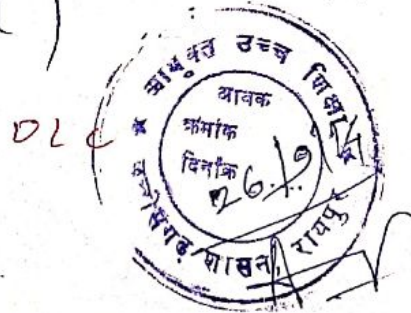 DLC
★ आयुक्त उच्च शिक्षा ★
आवक
क्रमांक
दिनांक
छत्तीसगढ़ शासन, रायपुर